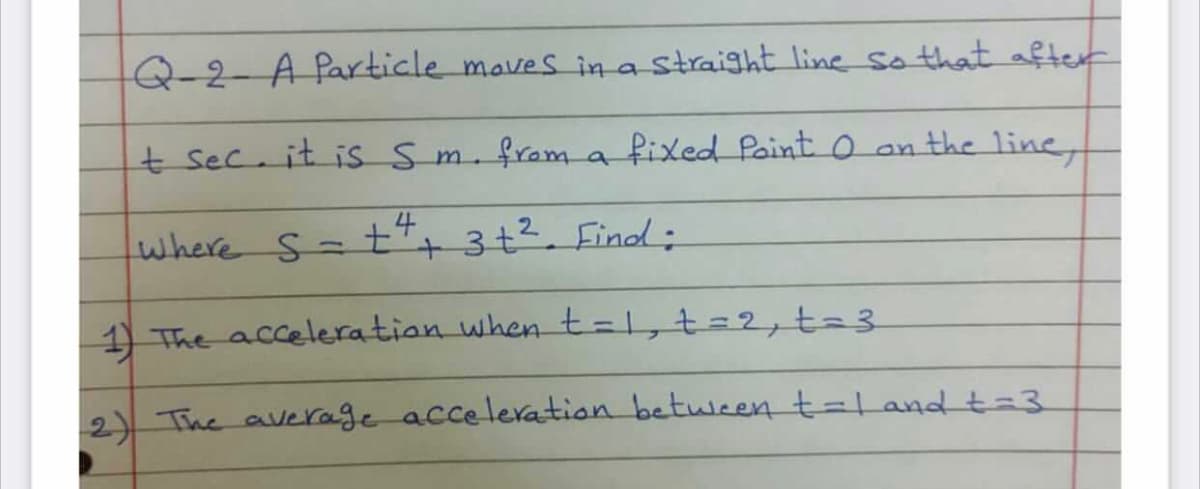 Q-2- A Particle moves in a straight line so that after
t sec. it is S m. from a fixed Point O on the line,
where S = t⁴ + 3t². Find :
1) The acceleration when t=1, t=2, t=3
2) The average acceleration between t=1 and t=3